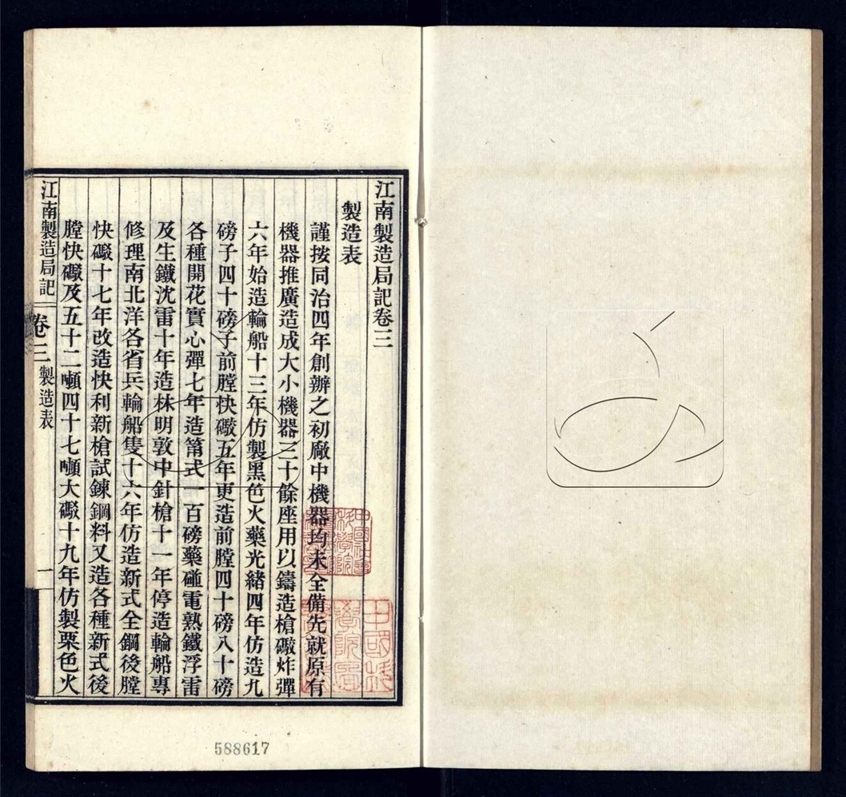 江南製造局記卷三
製造表
謹按同治四年創辦之初廠中機器均未全備先就原有
機器推廣造成大小機器三十餘座用以鑄造槍礮炸彈
六年始造輪船十三年仿製黑色火藥光緒四年仿造九
磅子四十磅子前膛快礮五年更造前膛四十磅八十磅
各種開花實心彈七年造筩式一百磅藥碰電熟鐵浮雷
及生鐵沈雷十年造林明敦中針槍十一年停造輪船專
修理南北洋各省兵輪船隻十六年仿造新式全鋼後膛
快礮十七年改造快利新槍試鍊鋼料又造各種新式後
膛快礮及五十二噸四十七噸大礮十九年仿製栗色火
江南製造局記 卷三 製造表 一
588617